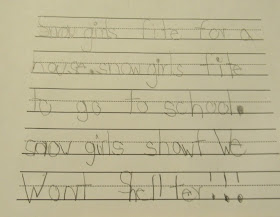 snow girls fite for a
house. snow girls fite
to go to school.
snow girls showt We
Wont Shellter!!!